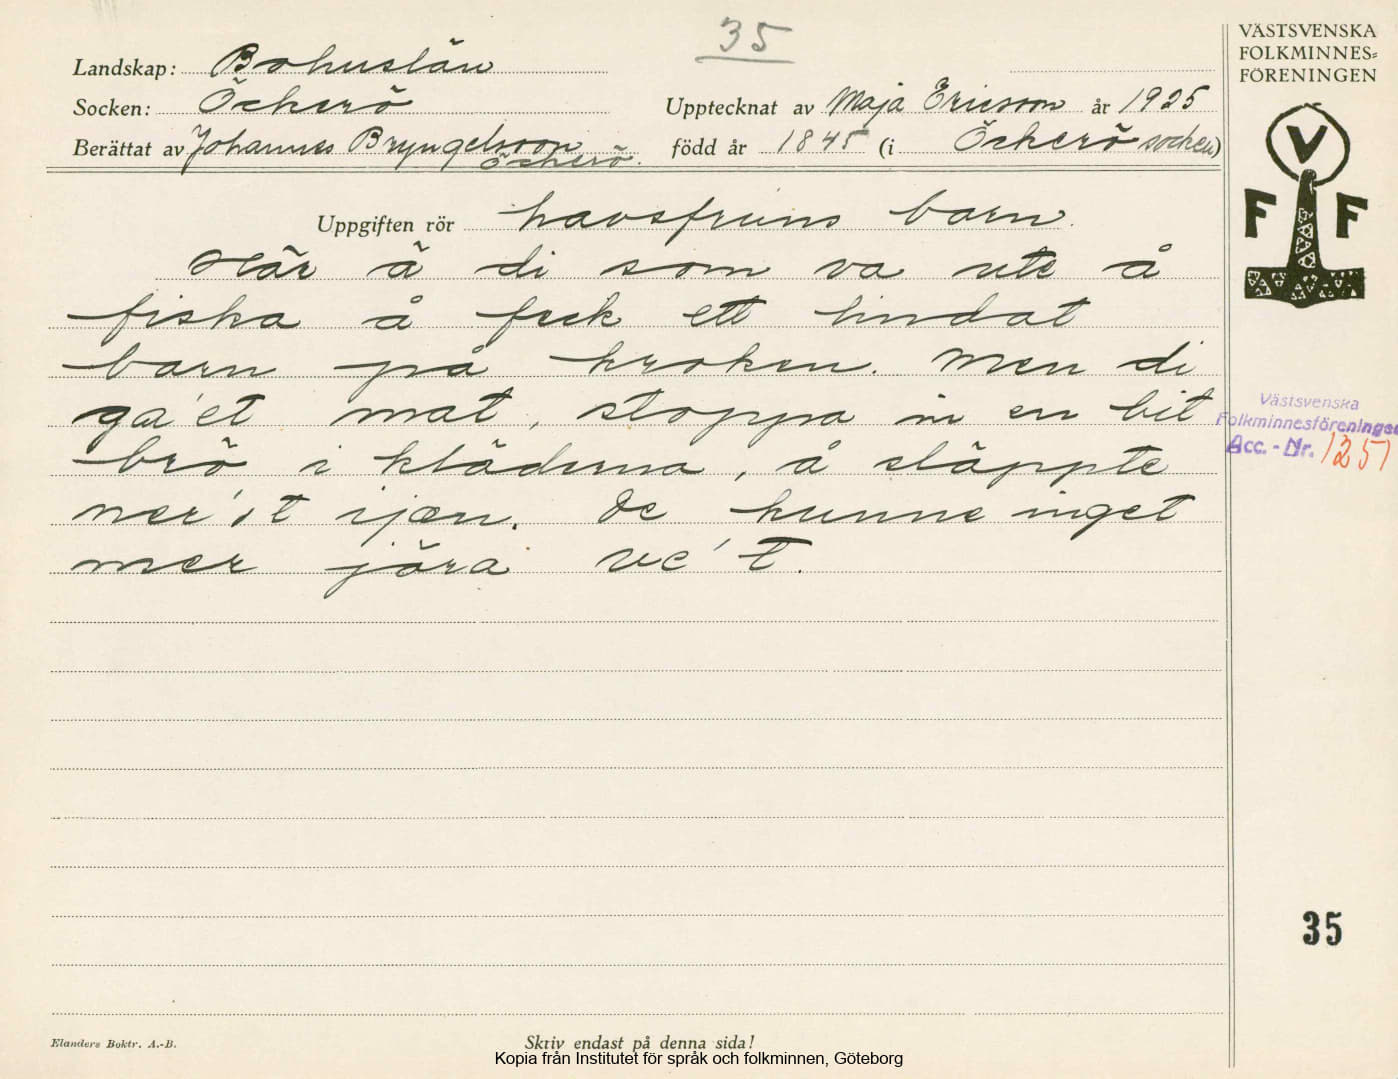 35
VÄSTSVENSKA
FOLKMINNES=
FÖRENINGEN
Landskap: Bohuslän
Socken: Öckerö
Upptecknat av Maja Ericsson år 1925
Berättat av Johannes Bryngelsson
Öckerö.
född år 1845 (i Öckerö socken)
V
F F
Uppgiften rör havsfruns barn.
Här ä di som va ute å
fiska å feck ett lindat
barn på kroken. Men di
ga'et mat, stoppa in en bit
brö i kläderna, å släppte
ner'et ijæn. De kunne inget
mer jöra ve't.
Västsvenska
Folkminnesföreningen
Acc. - Nr. 1251
35
Elanders Boktr. A.-B.
Skriv endast på denna sida!
Kopia från Institutet för språk och folkminnen, Göteborg